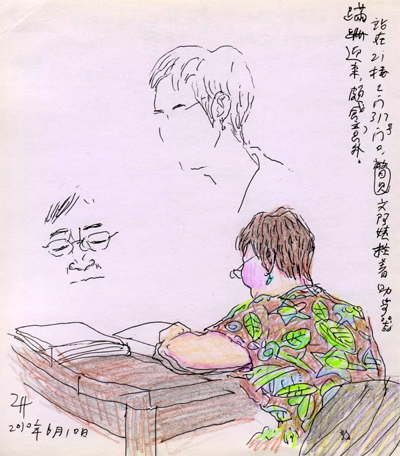 站在21楼2门317号门口,瞥见文阿姨拄着助步器
蹒跚近来,颇感意外。
ZH
2010年6月10日